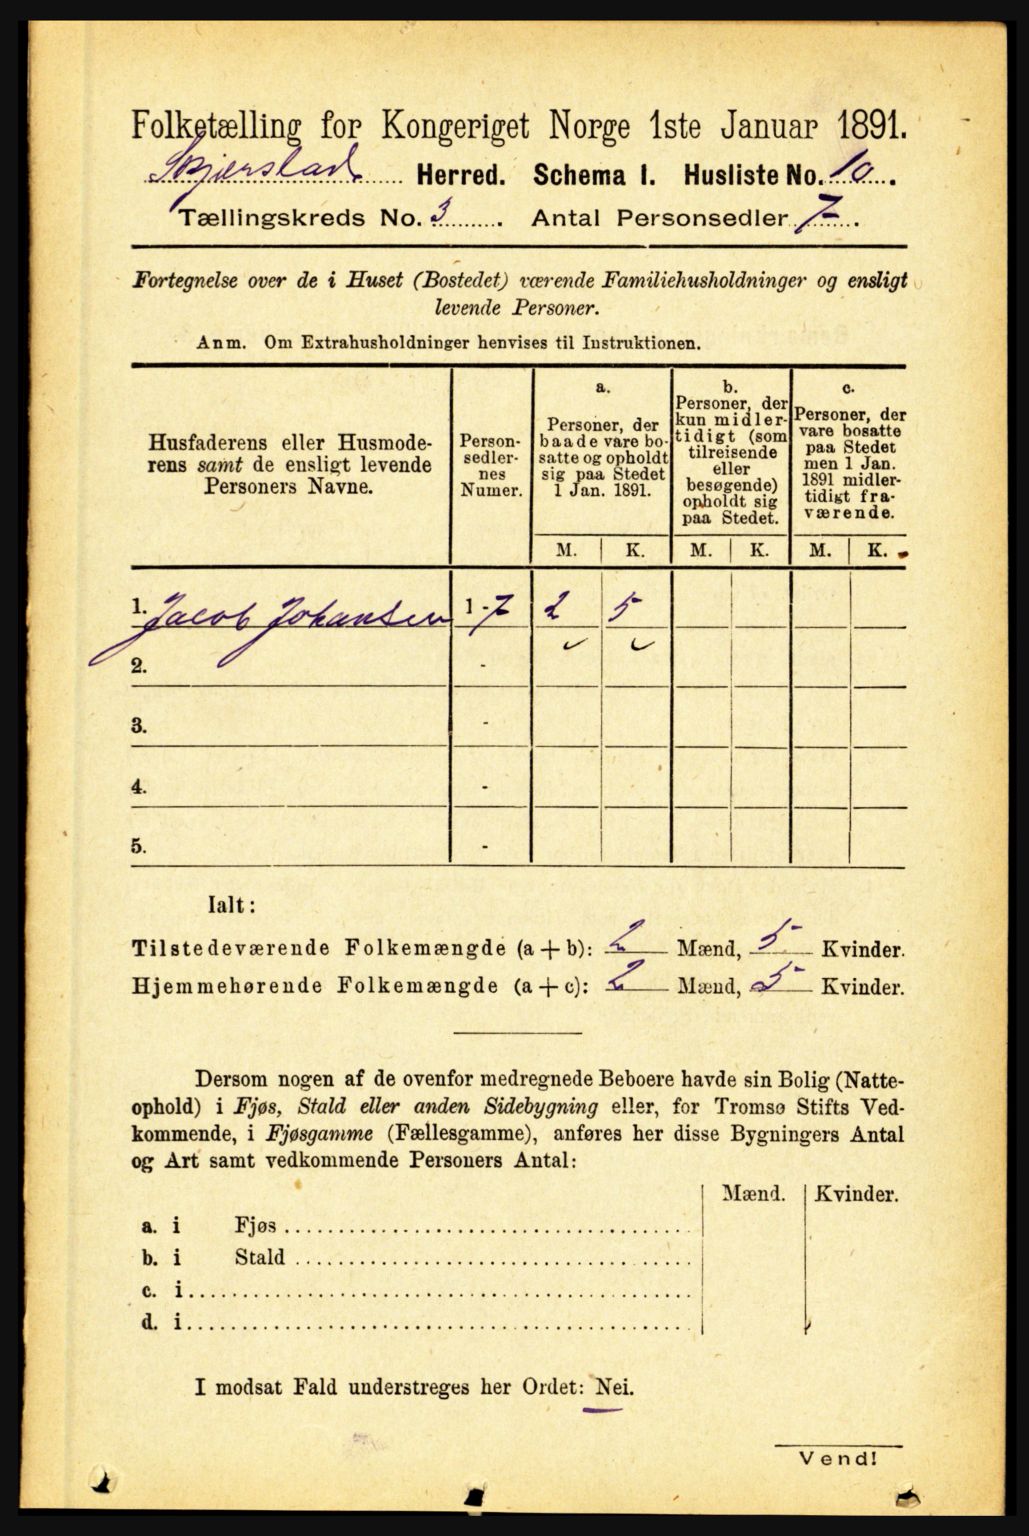 Folketælling for Kongeriget Norge 1ste Januar 1891.
Skjerstad Herred. Schema I. Husliste No. 10.
Tællingskreds No. 3. Antal Personsedler 7.
Fortegnelse over de i Huset (Bostedet) værende Familiehusholdninger og ensligt
levende Personer.
Anm. Om Extrahusholdninger henvises til Instruktionen.
Husfaderens eller Husmode-
rens samt de ensligt levende
Personers Navne.
Person-
sedler-
nes
Numer.
a.
Personer, der
baade vare bo-
satte og opholdt
sig paa Stedet
1 Jan. 1891.
b.
Personer, der
kun midler-
tidigt (som
tilreisende
eller
besøgende)
opholdt sig
paa Stedet.
c.
Personer, der
vare bosatte
paa Stedet
men 1 Jan.
1891 midler-
tidigt fra-
værende.
M. K. M. K. M. K.
1. Jacob Johansen 1-7 2 5
2. -
3. -
4. -
5. -
Ialt:
Tilstedeværende Folkemængde (a + b): 2 Mænd, 5 Kvinder.
Hjemmehørende Folkemængde (a + c): 2 Mænd, 5 Kvinder.
Dersom nogen af de ovenfor medregnede Beboere havde sin Bolig (Natte-
ophold) i Fjøs, Stald eller anden Sidebygning eller, for Tromsø Stifts Ved-
kommende, i Fjøsgamme (Fællesgamme), anføres her disse Bygningers Antal
og Art samt vedkommende Personers Antal:
Mænd. Kvinder.
a. i Fjøs
b. i Stald
c. i
d. i
I modsat Fald understreges her Ordet: Nei.
Vend!